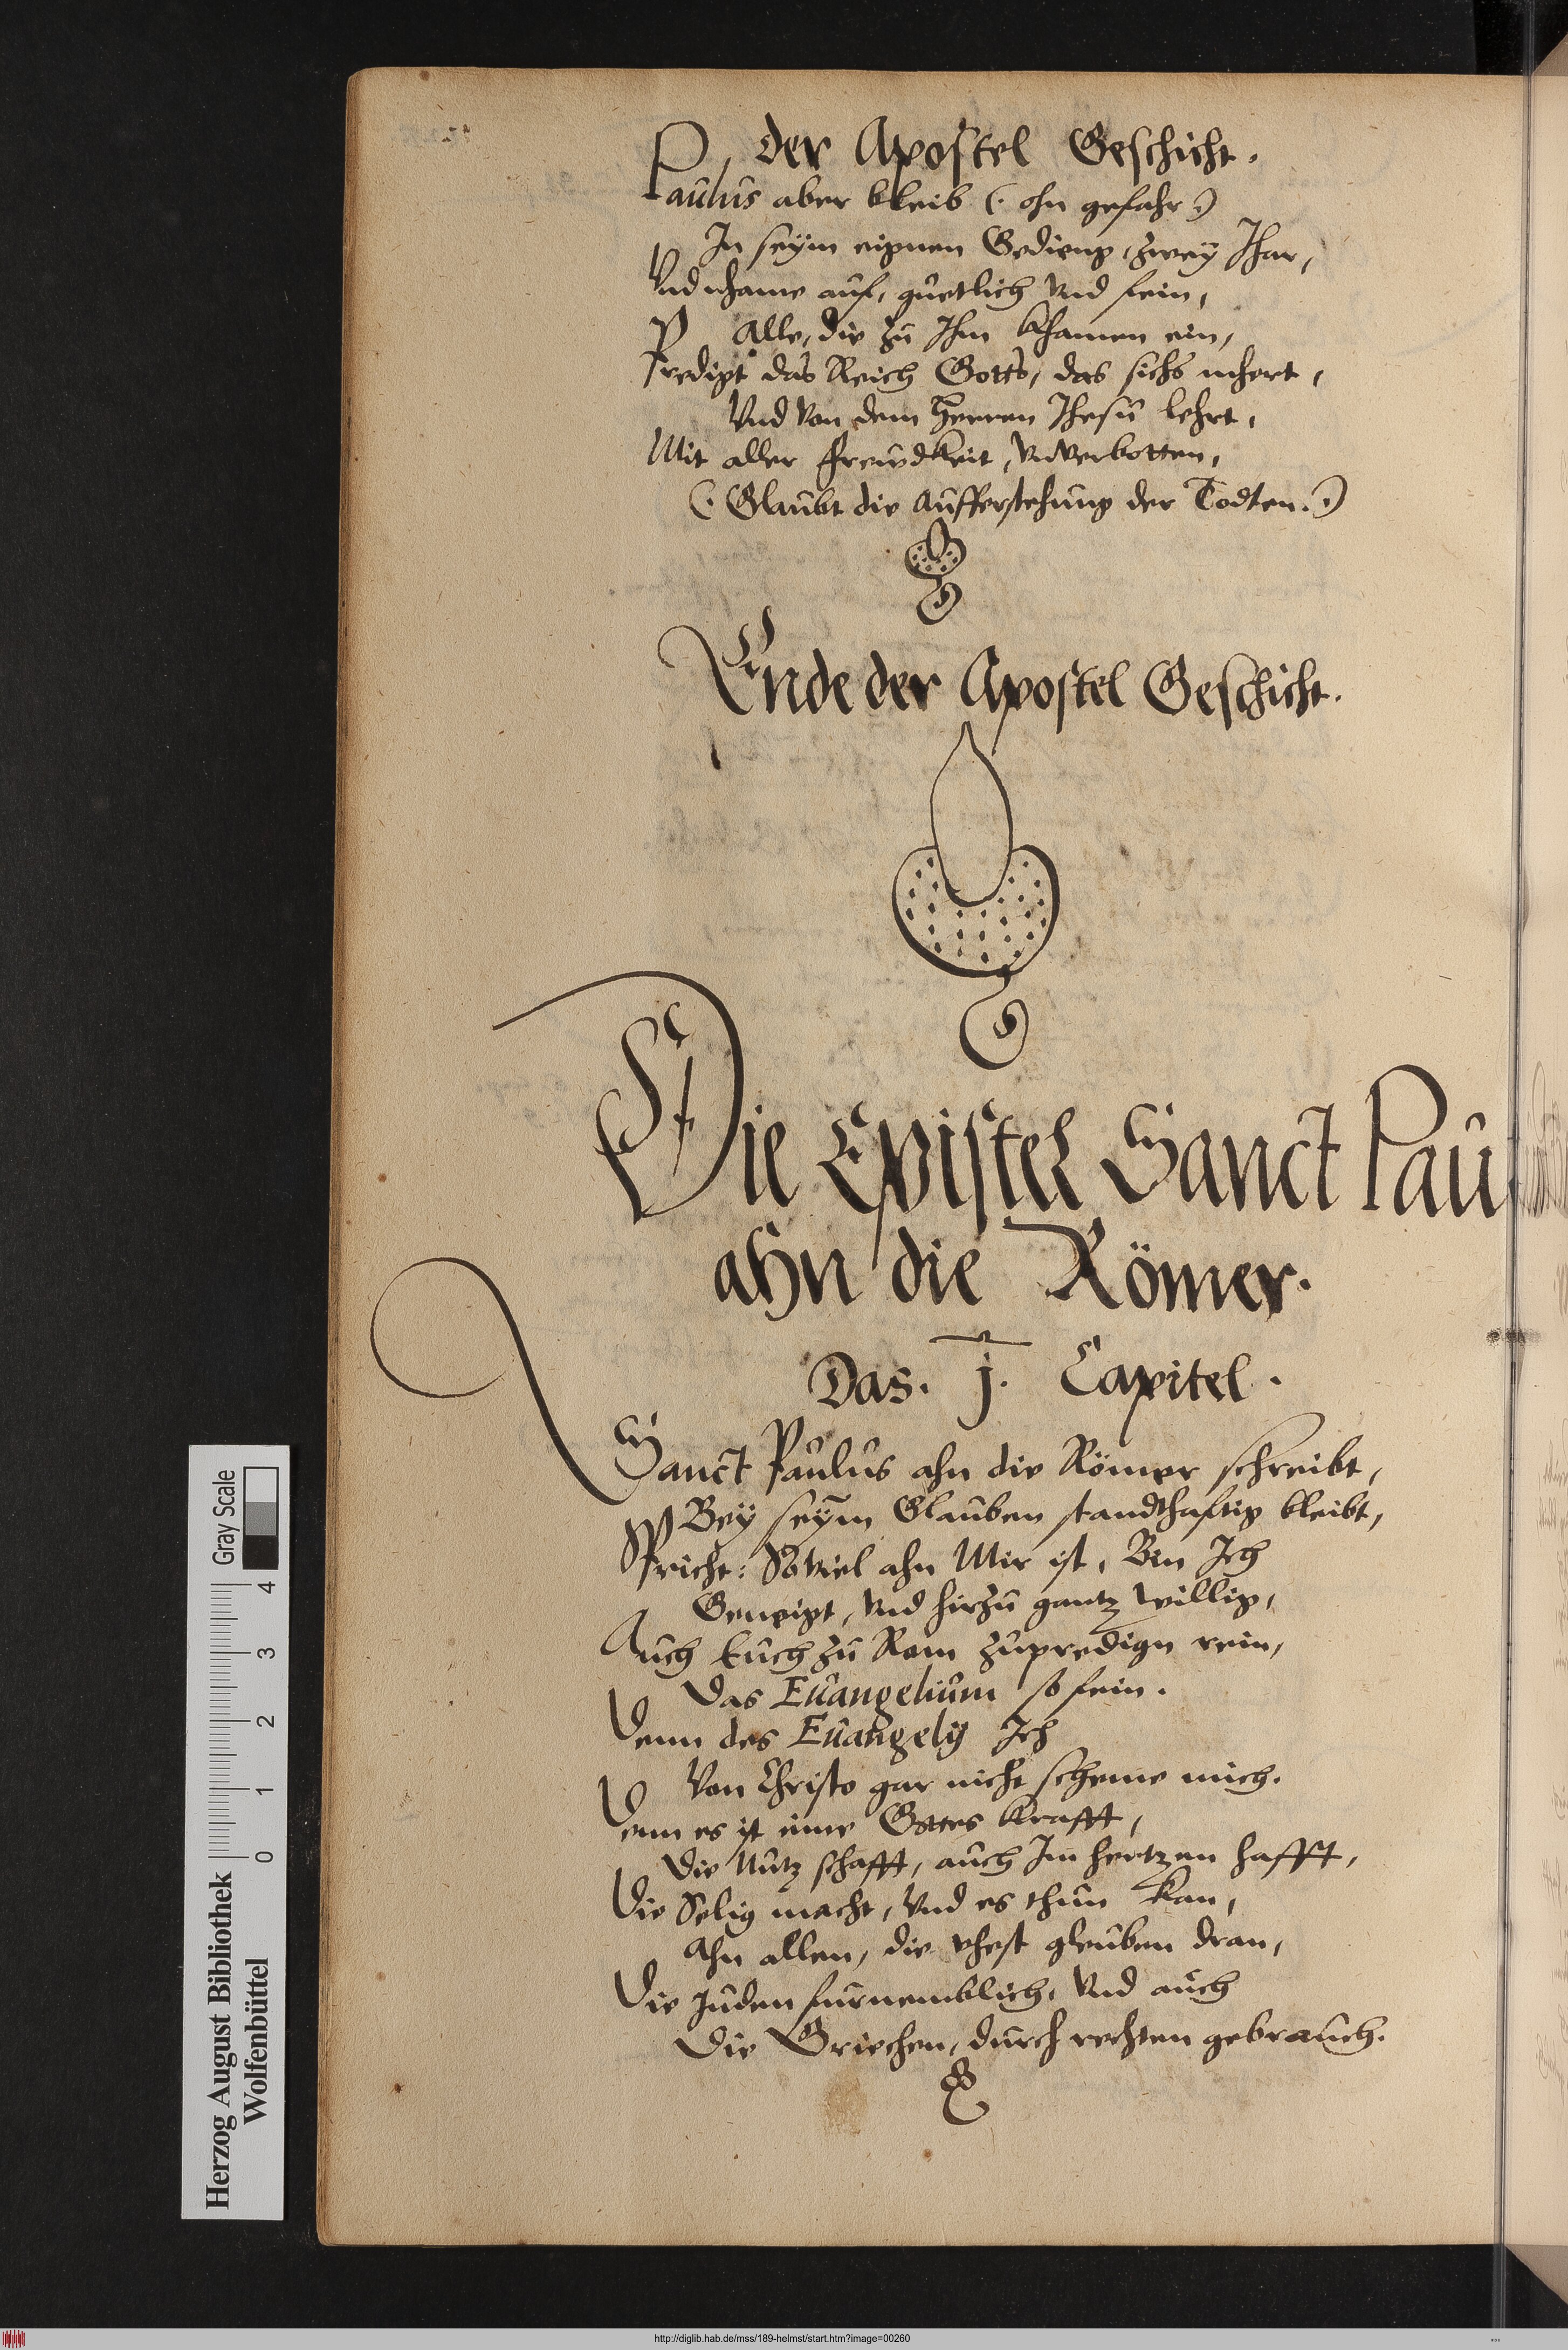 der Apostel Geschicht.
Paulus aber bleib (: ohn gefahr :)
In seÿm eignen Gedieng, zweÿ Jhar,
Vnd nhame auf, guetlich vnd fein,
Alle, die zu Ihm khamen ein,
Predigt das Reich Gotts, das sichs mhert,
Vnd von dem Herren Jhesu lehrt,
Mit aller frewdkeit, vnverbotten,
(: Glaubt die Aufferstehung der Todten. :)
Ende der Apostel Geschicht.
Die Epistel Sanct Pau
ahn die Römer.
Das. j. Capitel.
Sanct Paulus ahn die Römer schreibt,
Beÿ seÿm Glauben standthafftig bleibt,
Spricht: Soviel ahn Mir ist, Bin Ich
Geneigt, vnd hirzu gantz willig,
Auch Euch zu Rom zupredign rein,
Das Euangelium so fein.
Denn des Euangelij Ich
Von Christo gar nicht scheme mich.
Denn es ist eine Gottes krafft,
Die Nutz schafft, auch Im hertzen hafft,
Die Selig macht, vnd es thun kan,
Ahn allen, die vhest gleuben dran,
Die Juden furnemblich, vnd auch
Die Griechen, durch rechten gebrauch.
Herzog August Bibliothek
Wolfenbüttel
Gray Scale
0 1 2 3 4
http://diglib.hab.de/mss/189-helmst/start.htm?image=00260